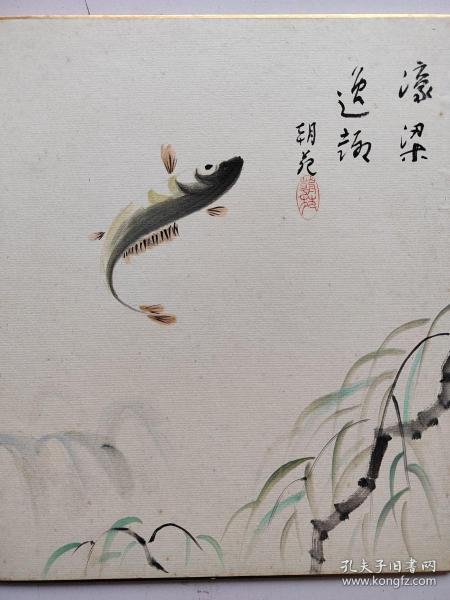 濠梁
逸趣
朝苑
孔夫子旧书网
www.kongfz.com